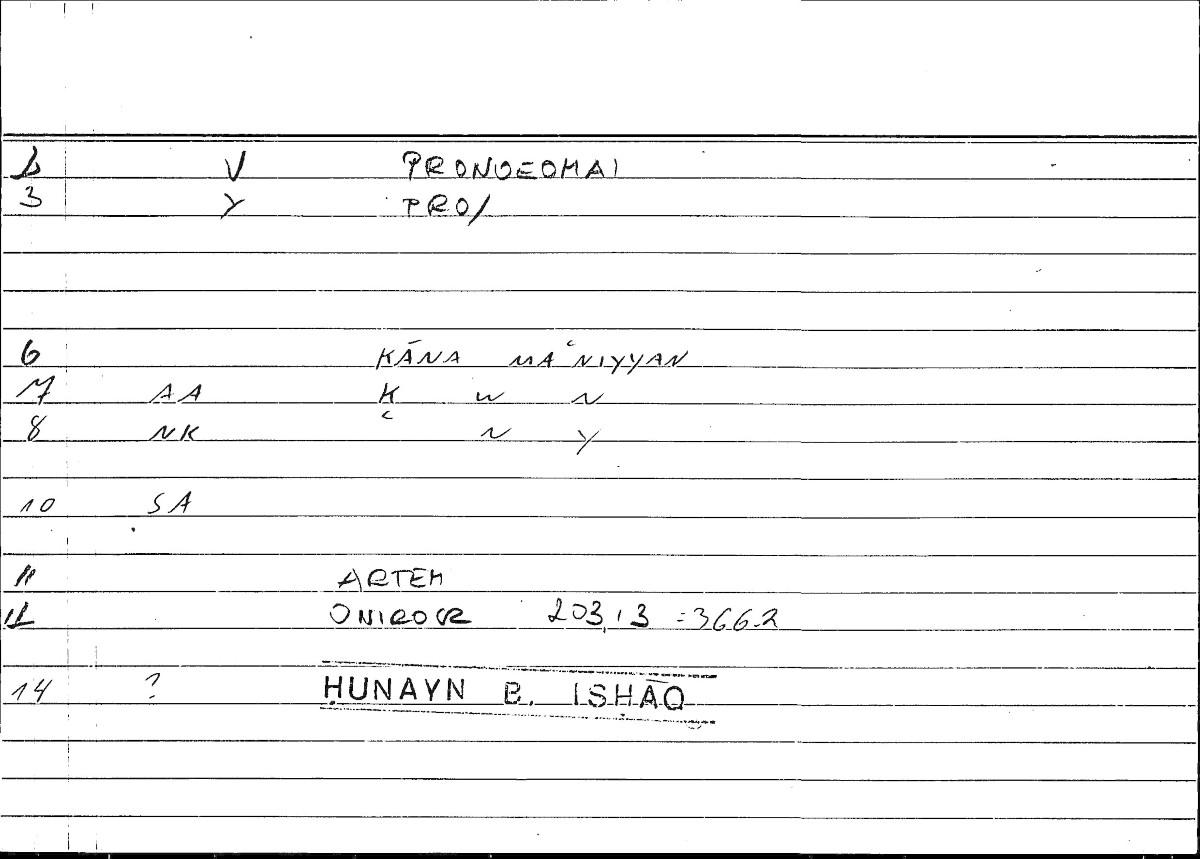 2 V PRONOEOMAI
3 Y PRO/
6 KĀNA MAʿNIYYAN
7 AA K W N
8 NK ʿ N Y
10 SA
11 ARTEM
12 ONIROCR 203,13 = 366.2
14 ? ḤUNAYN B. ISḤĀQ